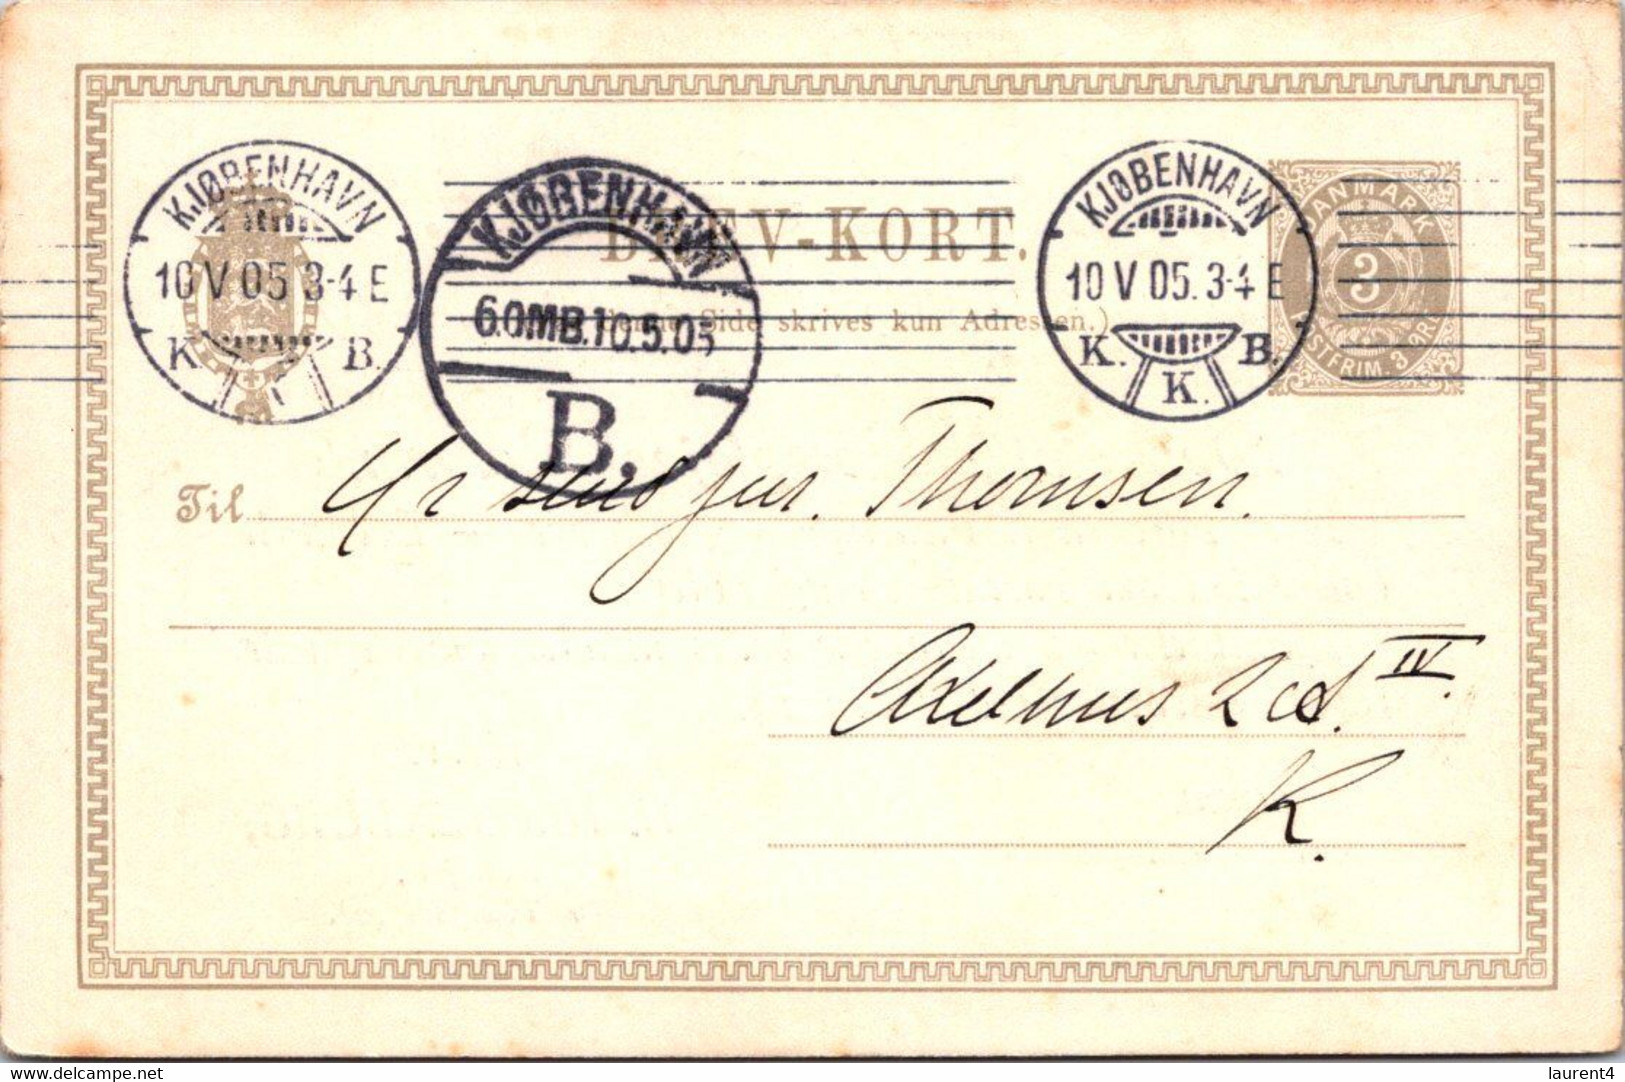 KJØBENHAVN
10 V 05 3-4 E
K. B.
KJØBENHAVN
6.0MB.10.5.05
B.
BREV-KORT.
(Paa denne Side skrives kun Adressen.)
KJØBENHAVN
10 V 05. 3-4 E
K. B.
K.
DANMARK
3
POSTFRIM. 3 ØR.
Til Hr stud jur. Thomsen.
Axelhus 2 IV.
K.
delcampe.net
laurent4